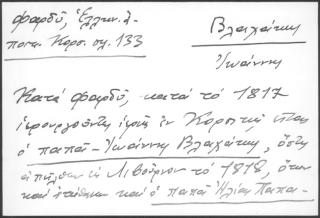 Φαρδύ, Ἑλλην. ἀ-
ποικ. Κορσ. σελ. 133
Βλαχάκης
Ἰωάννης
Κατά Φαρδύ, κατά τό 1817
ἱερουργοῦντες ἱερεῖς ἐν Κορσικῇ ἦσαν
ὁ παπᾶ-Ἰωάννης Βλαχάκης, ὅστις
ἀπῆλθεν εἰς Λιβοῦρνον τό 1818, ὅπου
καί ἐτάφη καί ὁ παπᾶ Ἠλίας Παπα-